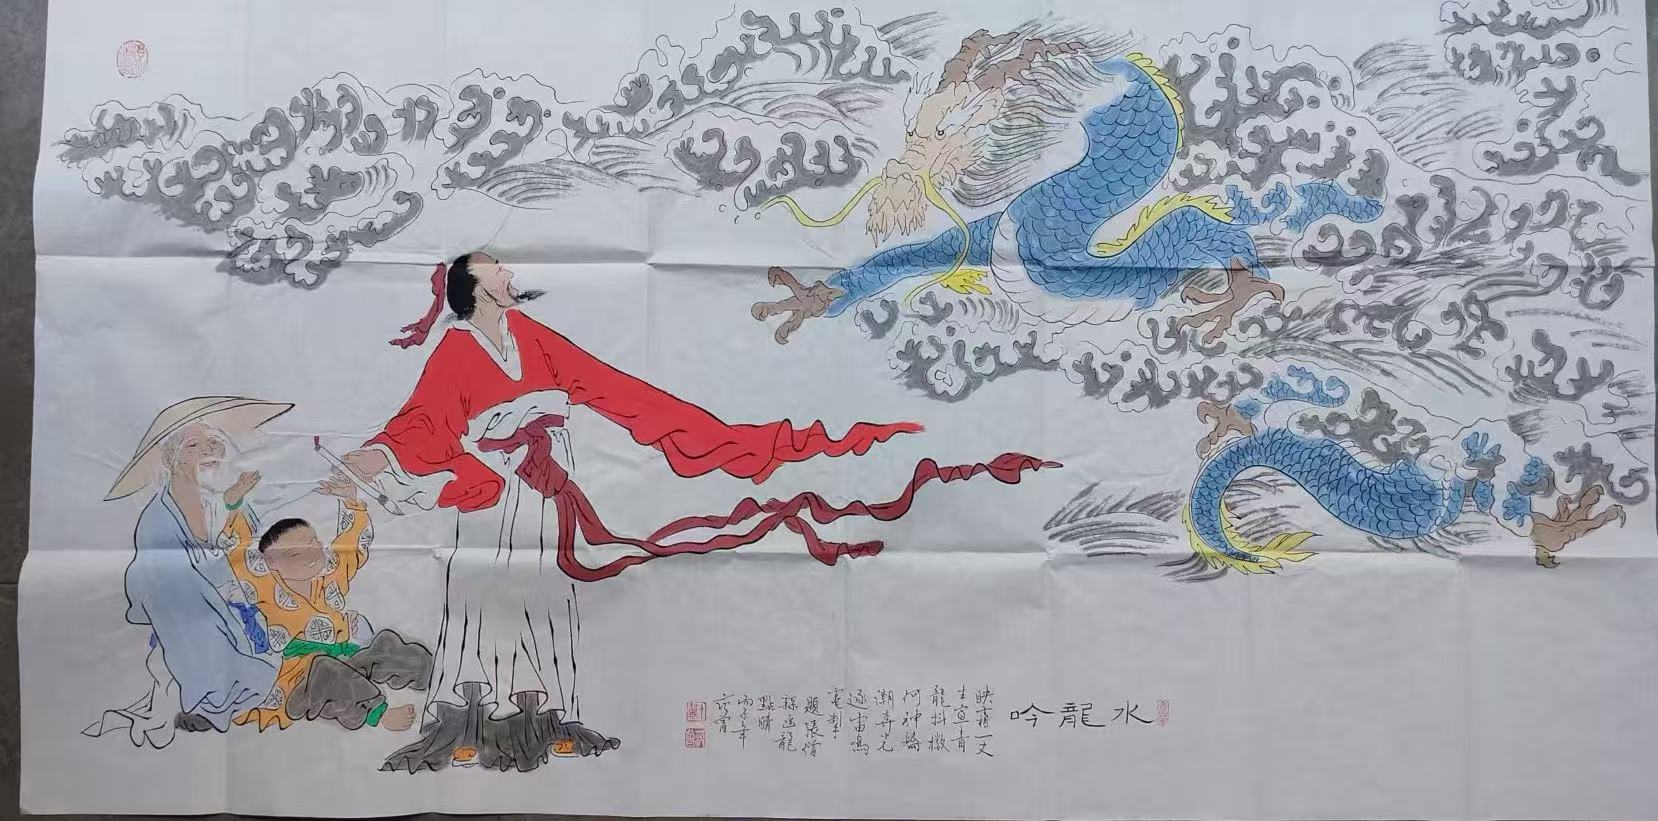 水龍吟
一丈
生宣青
龍抖擻
何神矯
潮奔光
逐雷鳴
電掣
題張僧
繇画龍
點睛
丙子年